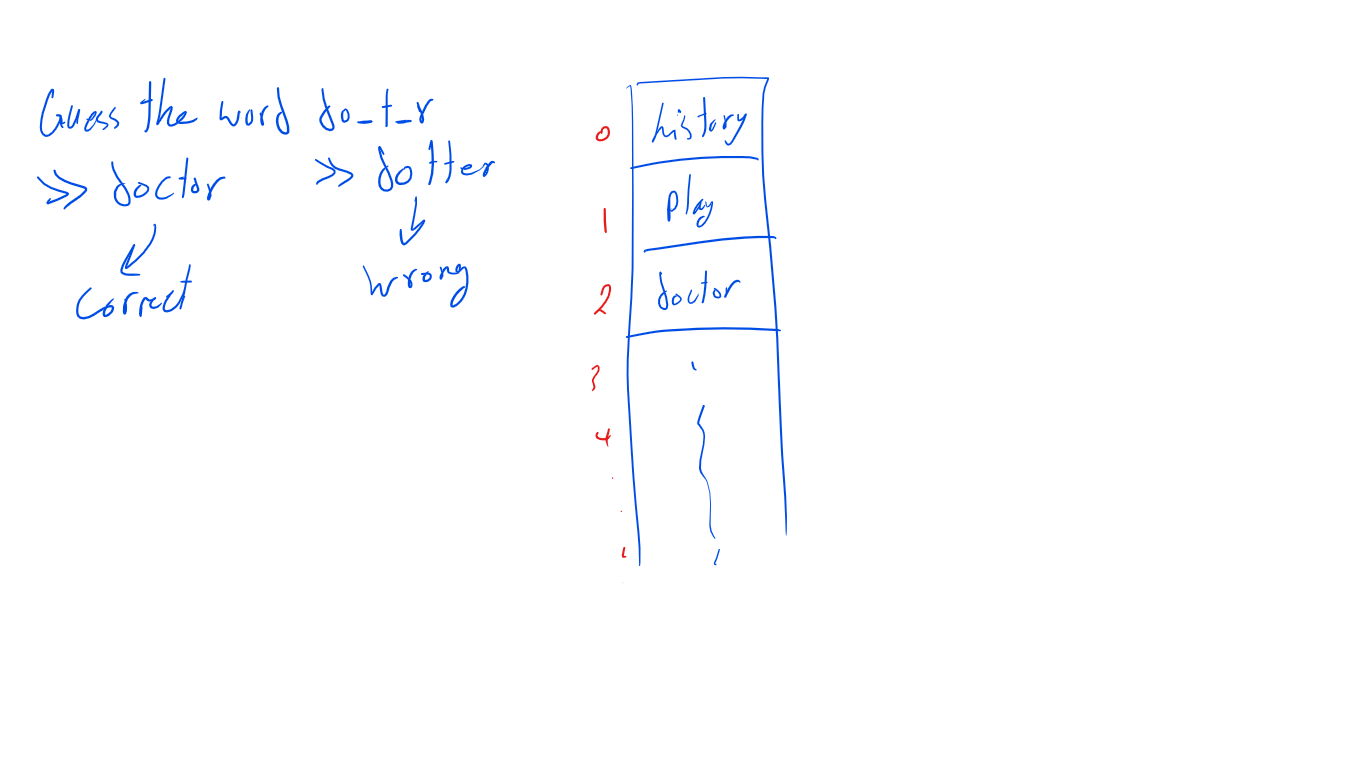 Guess the word do_t_r
>> doctor >> dotter
correct wrong
0 history
1 play
2 doctor
3
4